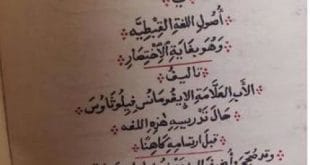 في
أُصُولِ اللغَةِ القِبْطِيَّه
وَهُوَ بِغَايَةِ الاِخْتِصَارِ
تَاليفُ
الأَبِ العَلَّامَةِ الإِيغومَانُسِ فِيلُوثَاؤُسَ
حَالَ تَدْرِيسِهِ هٰذِهِ اللغَه
قَبلَ ارتِسَامِهِ كَاهِنًا